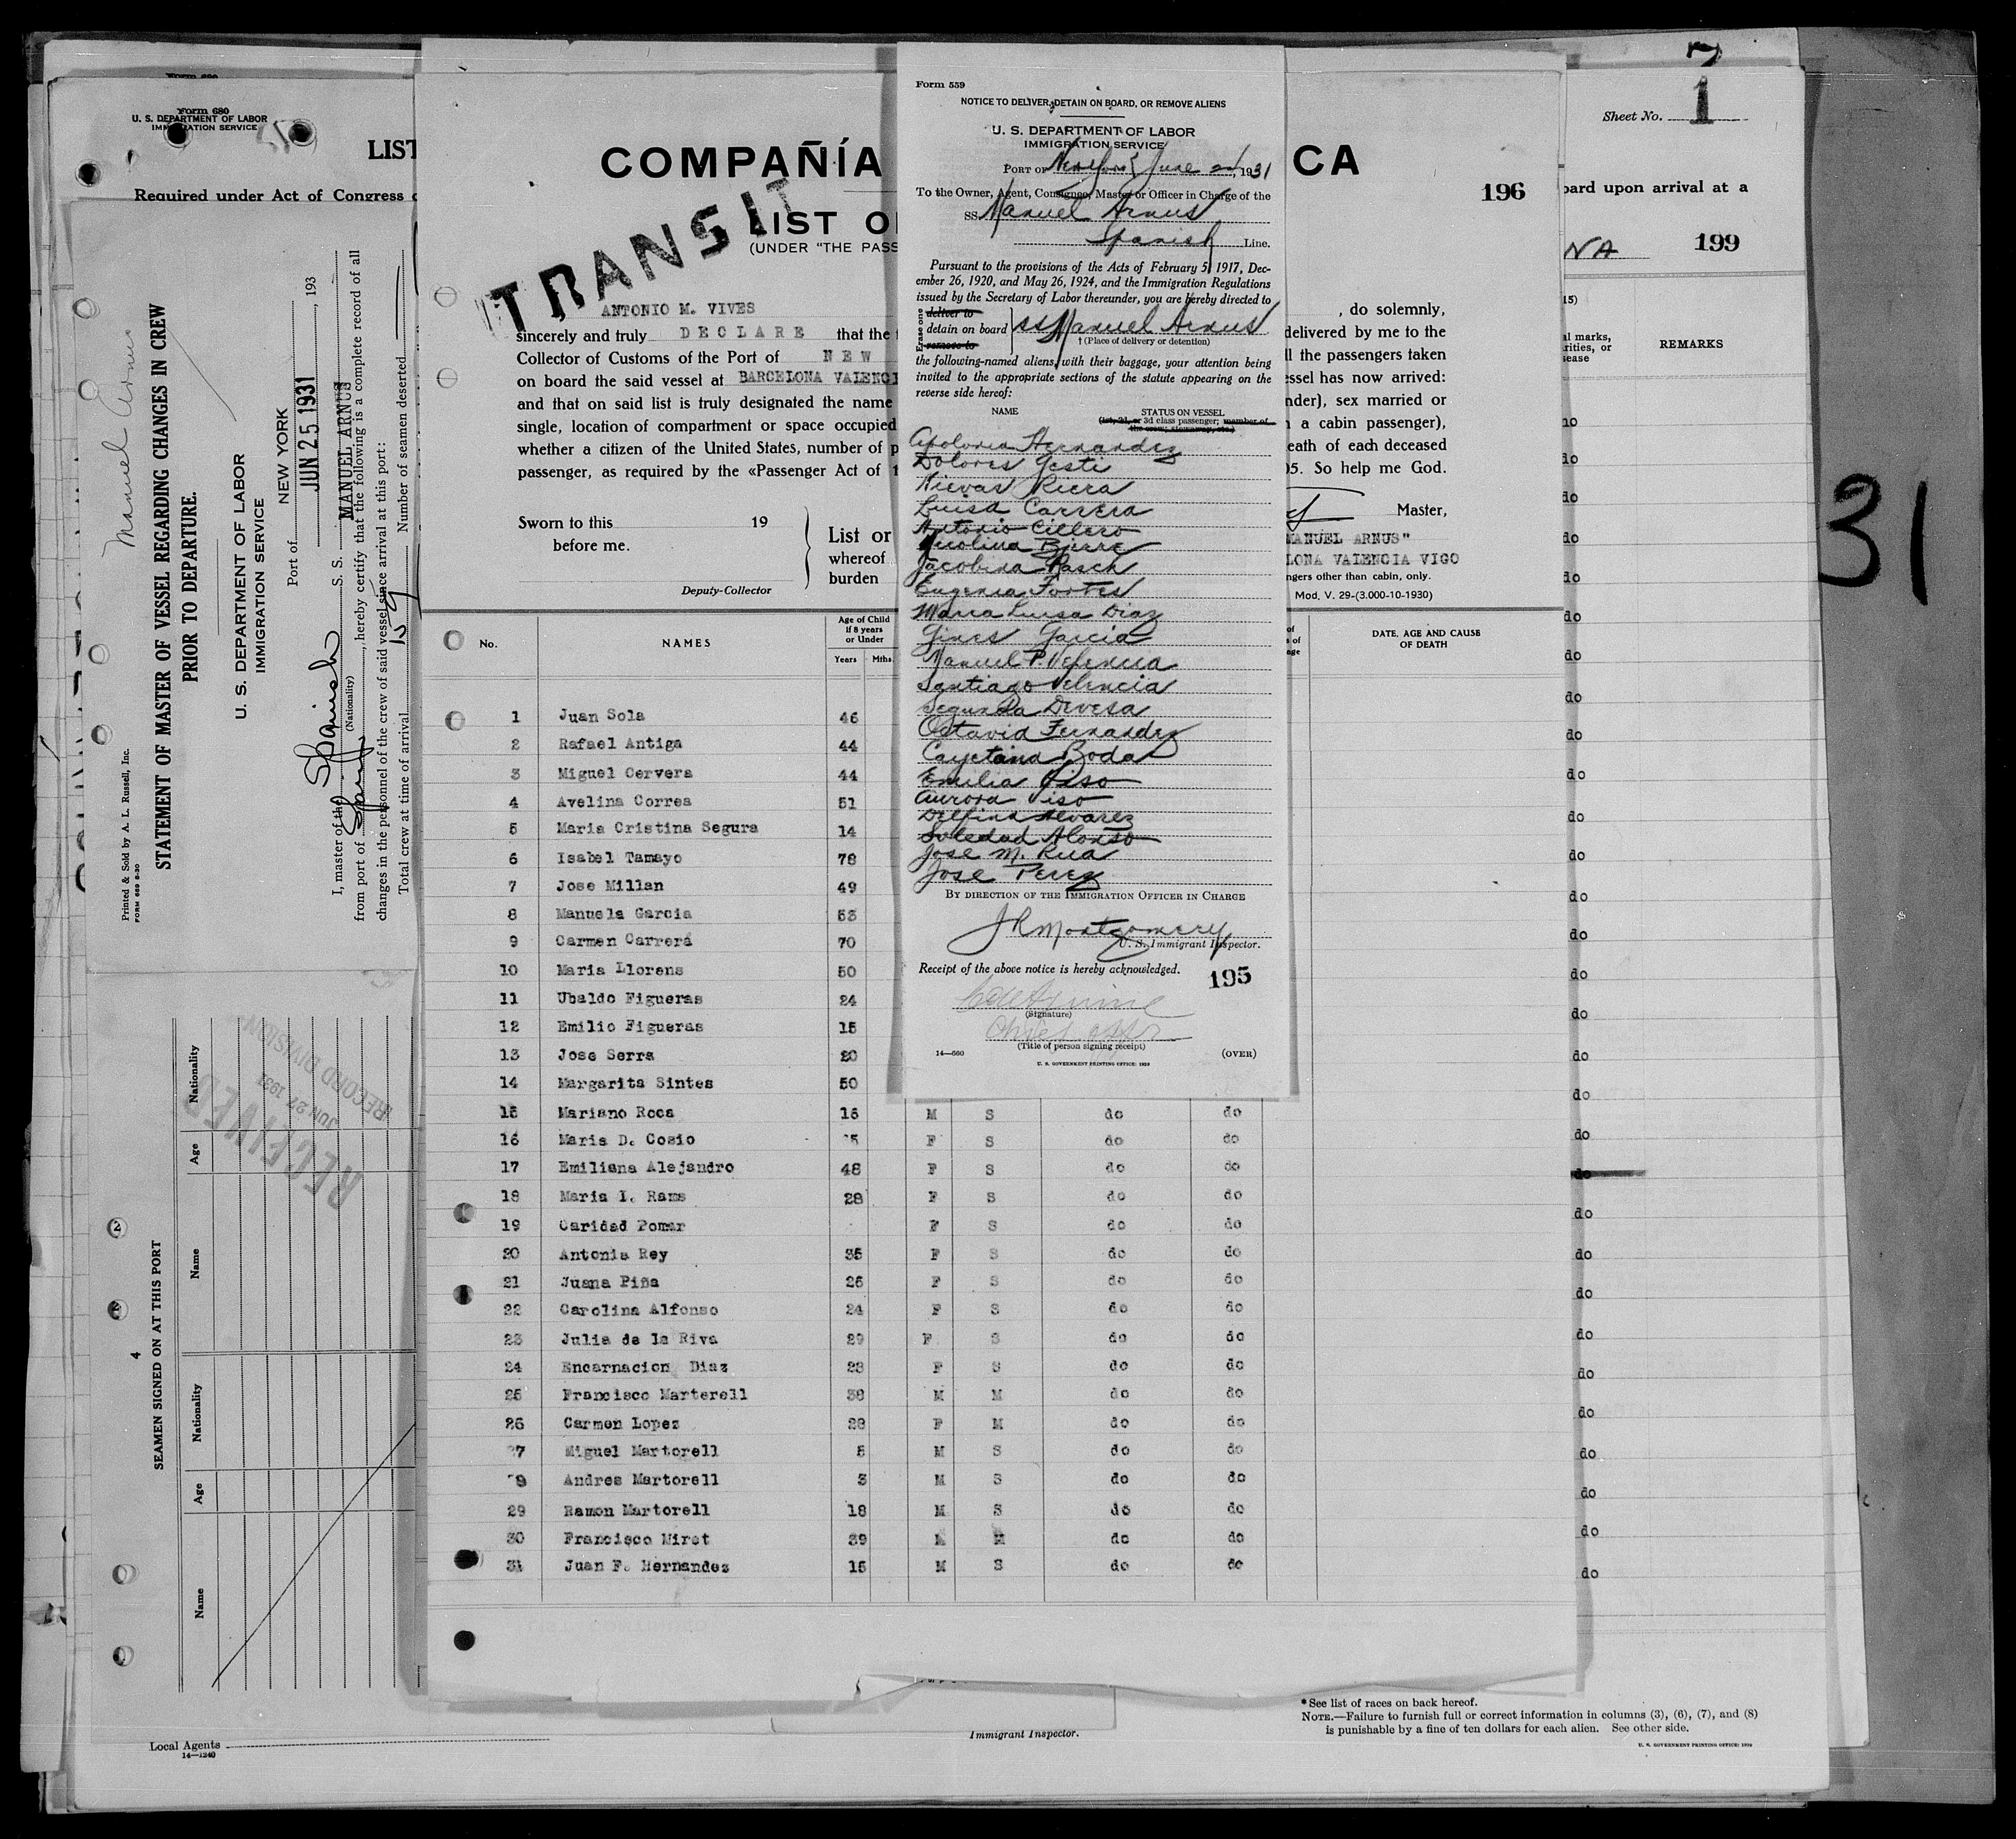 Form 680
U. S. DEPARTMENT OF LABOR
IMMIGRATION SERVICE
LIST
Required under Act of Congress
Manuel Arnus
STATEMENT OF MASTER OF VESSEL REGARDING CHANGES IN CREW
PRIOR TO DEPARTURE.
U. S. DEPARTMENT OF LABOR
IMMIGRATION SERVICE
NEW YORK
Port of
JUN 25 1931, 193
I, master of the Spanish S. S. MANUEL ARNUS
(Nationality)
from port of Spain, hereby certify that the following is a complete record of all
changes in the personnel of the crew of said vessel since arrival at this port:
Total crew at time of arrival Number of seamen deserted
Printed & Sold by A. L. Russell, Inc.
FORM 689 8-30
RECEIVED
JUN 27 1931
RECORD DIVISION
4
SEAMEN SIGNED ON AT THIS PORT
Name Age Nationality Name Age Nationality
Local Agents
14—1240
COMPAÑÍA
CA
196
TRANSIT
LIST O
(UNDER "THE PASS
ANTONIO M. VIVES , do solemnly,
sincerely and truly DECLARE that the delivered by me to the
Collector of Customs of the Port of NEW ll the passengers taken
on board the said vessel at BARCELONA VALENCI essel has now arrived:
and that on said list is truly designated the name nder), sex married or
single, location of compartment or space occupied a cabin passenger),
whether a citizen of the United States, number of p eath of each deceased
passenger, as required by the «Passenger Act of 1 05. So help me God.
Master,
Sworn to this 19
before me.
Deputy-Collector
List or
whereof
burden
MANUEL ARNUS"
LONA VALENCIA VIGO
ngers other than cabin, only.
Mod, V. 29-(3.000-10-1930)
No. NAMES Age of Child if 8 years or Under Years Mths. DATE, AGE AND CAUSE OF DEATH
1 Juan Sola 46
2 Rafael Antiga 44
3 Miguel Cervera 44
4 Avelina Correa 51
5 Maria Cristina Segura 14
6 Isabel Tamayo 78
7 Jose Millan 49
8 Manuela Garcia 53
9 Carmen Carrerá 70
10 Maria Llorens 50
11 Ubaldo Figueras 24
12 Emilio Figueras 15
13 Jose Serra 20
14 Margarita Sintes 50
15 Mariano Roca 16 M S do do
16 Maria D. Cosio 5 F S do do
17 Emiliana Alejandro 48 F S do do
18 Maria I. Rams 28 F S do do
19 Caridad Pomar F S do do
20 Antonia Rey 35 F S do do
21 Juana Piña 26 F S do do
22 Carolina Alfonso 24 F S do do
23 Julia de la Riva 29 F S do do
24 Encarnacion Diaz 23 F S do do
25 Francisco Marterell 38 M M do do
26 Carmen Lopez 28 F M do do
27 Miguel Martorell 5 M S do do
Andres Martorell 3 M S do do
29 Ramon Martorell 18 M S do do
30 Francisco Miret 39 M M do do
31 Juan F. Hernandez 15 M S do do
Form 559
NOTICE TO DELIVER, DETAIN ON BOARD, OR REMOVE ALIENS
U. S. DEPARTMENT OF LABOR
IMMIGRATION SERVICE
PORT OF New York June 2, 1931
To the Owner, Agent, Consignee, Master or Officer in Charge of the
SS Manuel Arnus
Spanish Line.
Pursuant to the provisions of the Acts of February 5, 1917, Dec-
ember 26, 1920, and May 26, 1924, and the Immigration Regulations
issued by the Secretary of Labor thereunder, you are hereby directed to
Erase one deliver to
detain on board SS Manuel Arnus
remove to † (Place of delivery or detention)
the following-named aliens, with their baggage, your attention being
invited to the appropriate sections of the statute appearing on the
reverse side hereof:
NAME STATUS ON VESSEL
(1st, 2d, or 3d class passenger; member of
the crew; stowaway, etc.)
Apolonia Hernandez
Dolores Gesti
Nievas Riera
Luisa Carrera
Antonio Cillero
Jacobina Pasch
Eugenia Fortes
Maria Luisa Diaz
Gines Garcia
Manuel P. Velencia
Santiago Velencia
Segunda Devesa
Octavia Fernandez
Cayetana Boda
Emilia Viso
Aurora Viso
Delfina Alvarez
Soledad Alonso
Jose M. Rua
Jose Perez
BY DIRECTION OF THE IMMIGRATION OFFICER IN CHARGE
J R Montgomery
U. S. Immigrant Inspector.
Receipt of the above notice is hereby acknowledged.
195
(Signature)
(Title of person signing receipt)
14—660 (OVER)
U. S. GOVERNMENT PRINTING OFFICE: 1929
Sheet No. 1
oard upon arrival at a
NA 199
REMARKS
31
Immigrant Inspector.
* See list of races on back hereof.
NOTE.—Failure to furnish full or correct information in columns (3), (6), (7), and (8)
is punishable by a fine of ten dollars for each alien. See other side.
U. S. GOVERNMENT PRINTING OFFICE: 1929